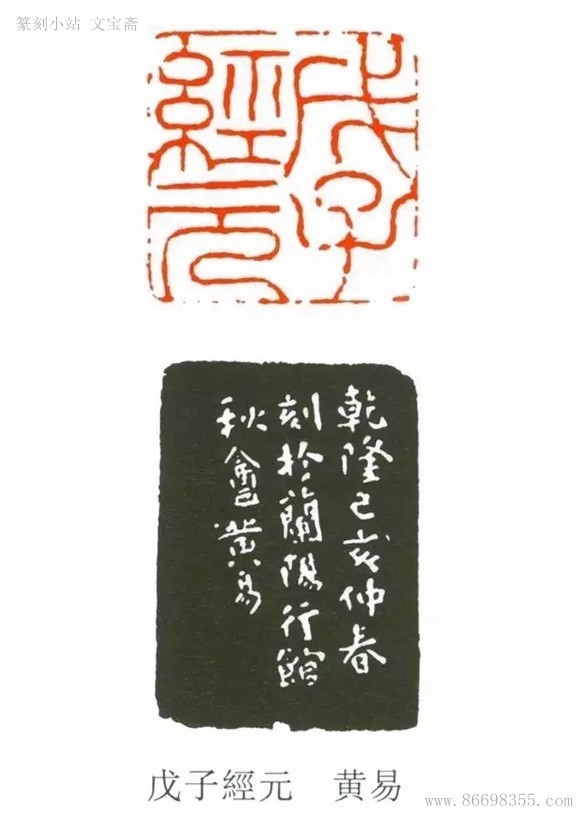 篆刻小站 文宝斋
戊子
經元
乾隆己亥仲春
刻於蘭陽行館
秋盦黄易
戊子經元 黄易
www.86698355.com